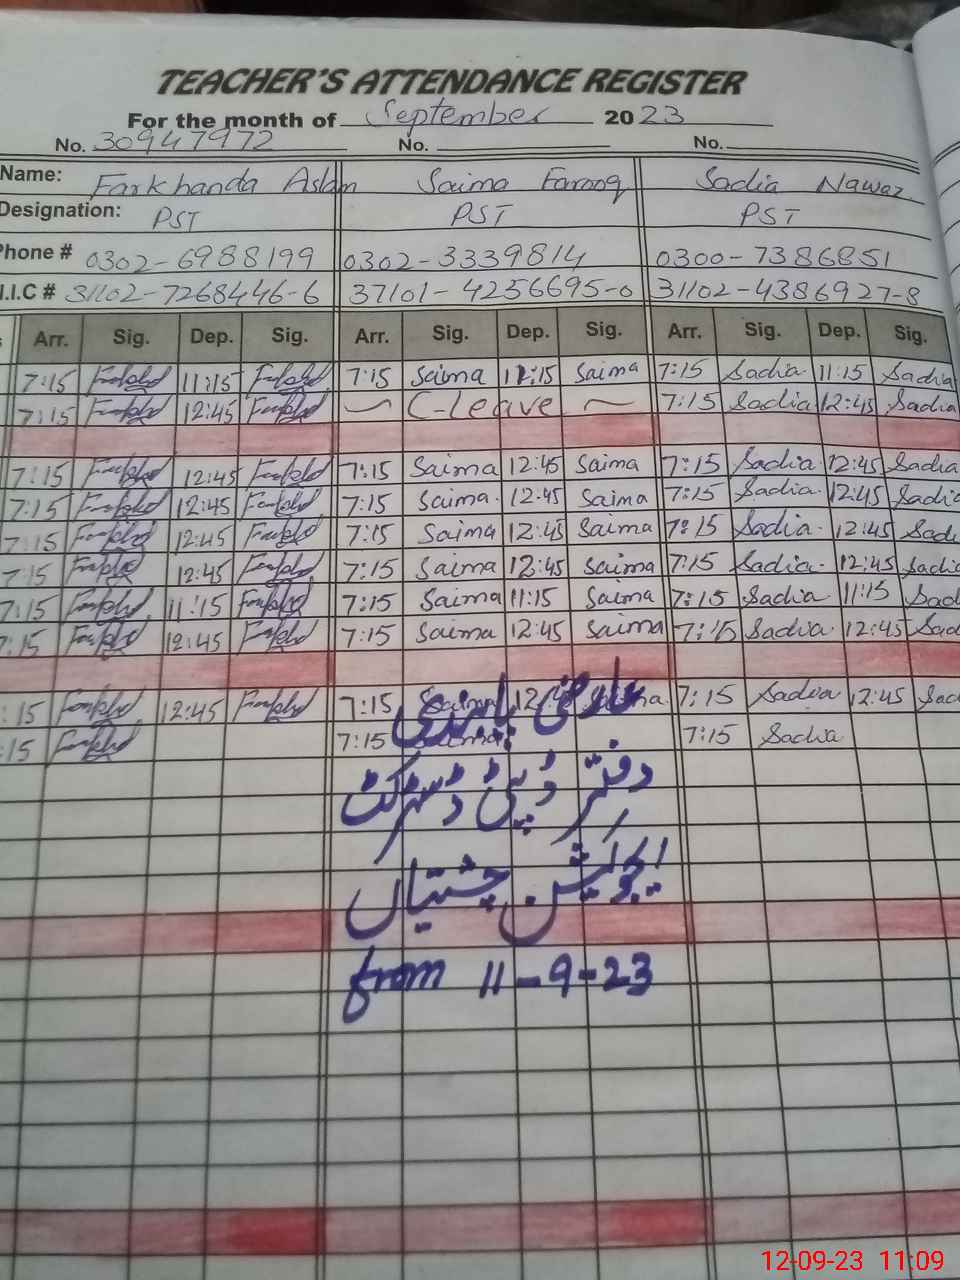 TEACHER'S ATTENDANCE REGISTER
For the month of September 2023
No. 30947972 No. No.
Name: Farkhanda Aslam Saima Farooq Sadia Nawaz.
Designation: PST PST PST
Phone # 0302-6988199 0302-3339814 0300-7386851
I.I.C # 31102-7268446-6 37101-4256695-0 31102-4386927-8
Arr. Sig. Dep. Sig. Arr. Sig. Dep. Sig. Arr. Sig. Dep. Sig.
7:15 11:15 7:15 Saima 11:15 Saima 7:15 Sadia 11:15 Sadia
7:15 12:45 C-leave 7:15 Sadia 12:45 Sadia
7:15 12:45 7:15 Saima 12:45 Saima 7:15 Sadia 12:45 Sadia
7:15 12:45 7:15 Saima 12:45 Saima 7:15 Sadia 12:45 Sadia
7:15 12:45 7:15 Saima 12:45 Saima 7:15 Sadia 12:45 Sadi
7:15 12:45 7:15 Saima 12:45 Saima 7:15 Sadia 12:45 Sadi
7:15 11:15 7:15 Saima 11:15 Saima 7:15 Sadia 11:15 Sad
7:15 12:45 7:15 Saima 12:45 Saima 7:15 Sadia 12:45 Sad
:15 12:45 7:15 Saima 12:45 Saima 7:15 Sadia 12:45 Sad
:15 7:15 Saima 7:15 Sadia
عارضی پابندی
دفتر ڈپٹی ڈسٹرکٹ
ایجوکیشن چشتیاں
from 11-9-23
12-09-23 11:09